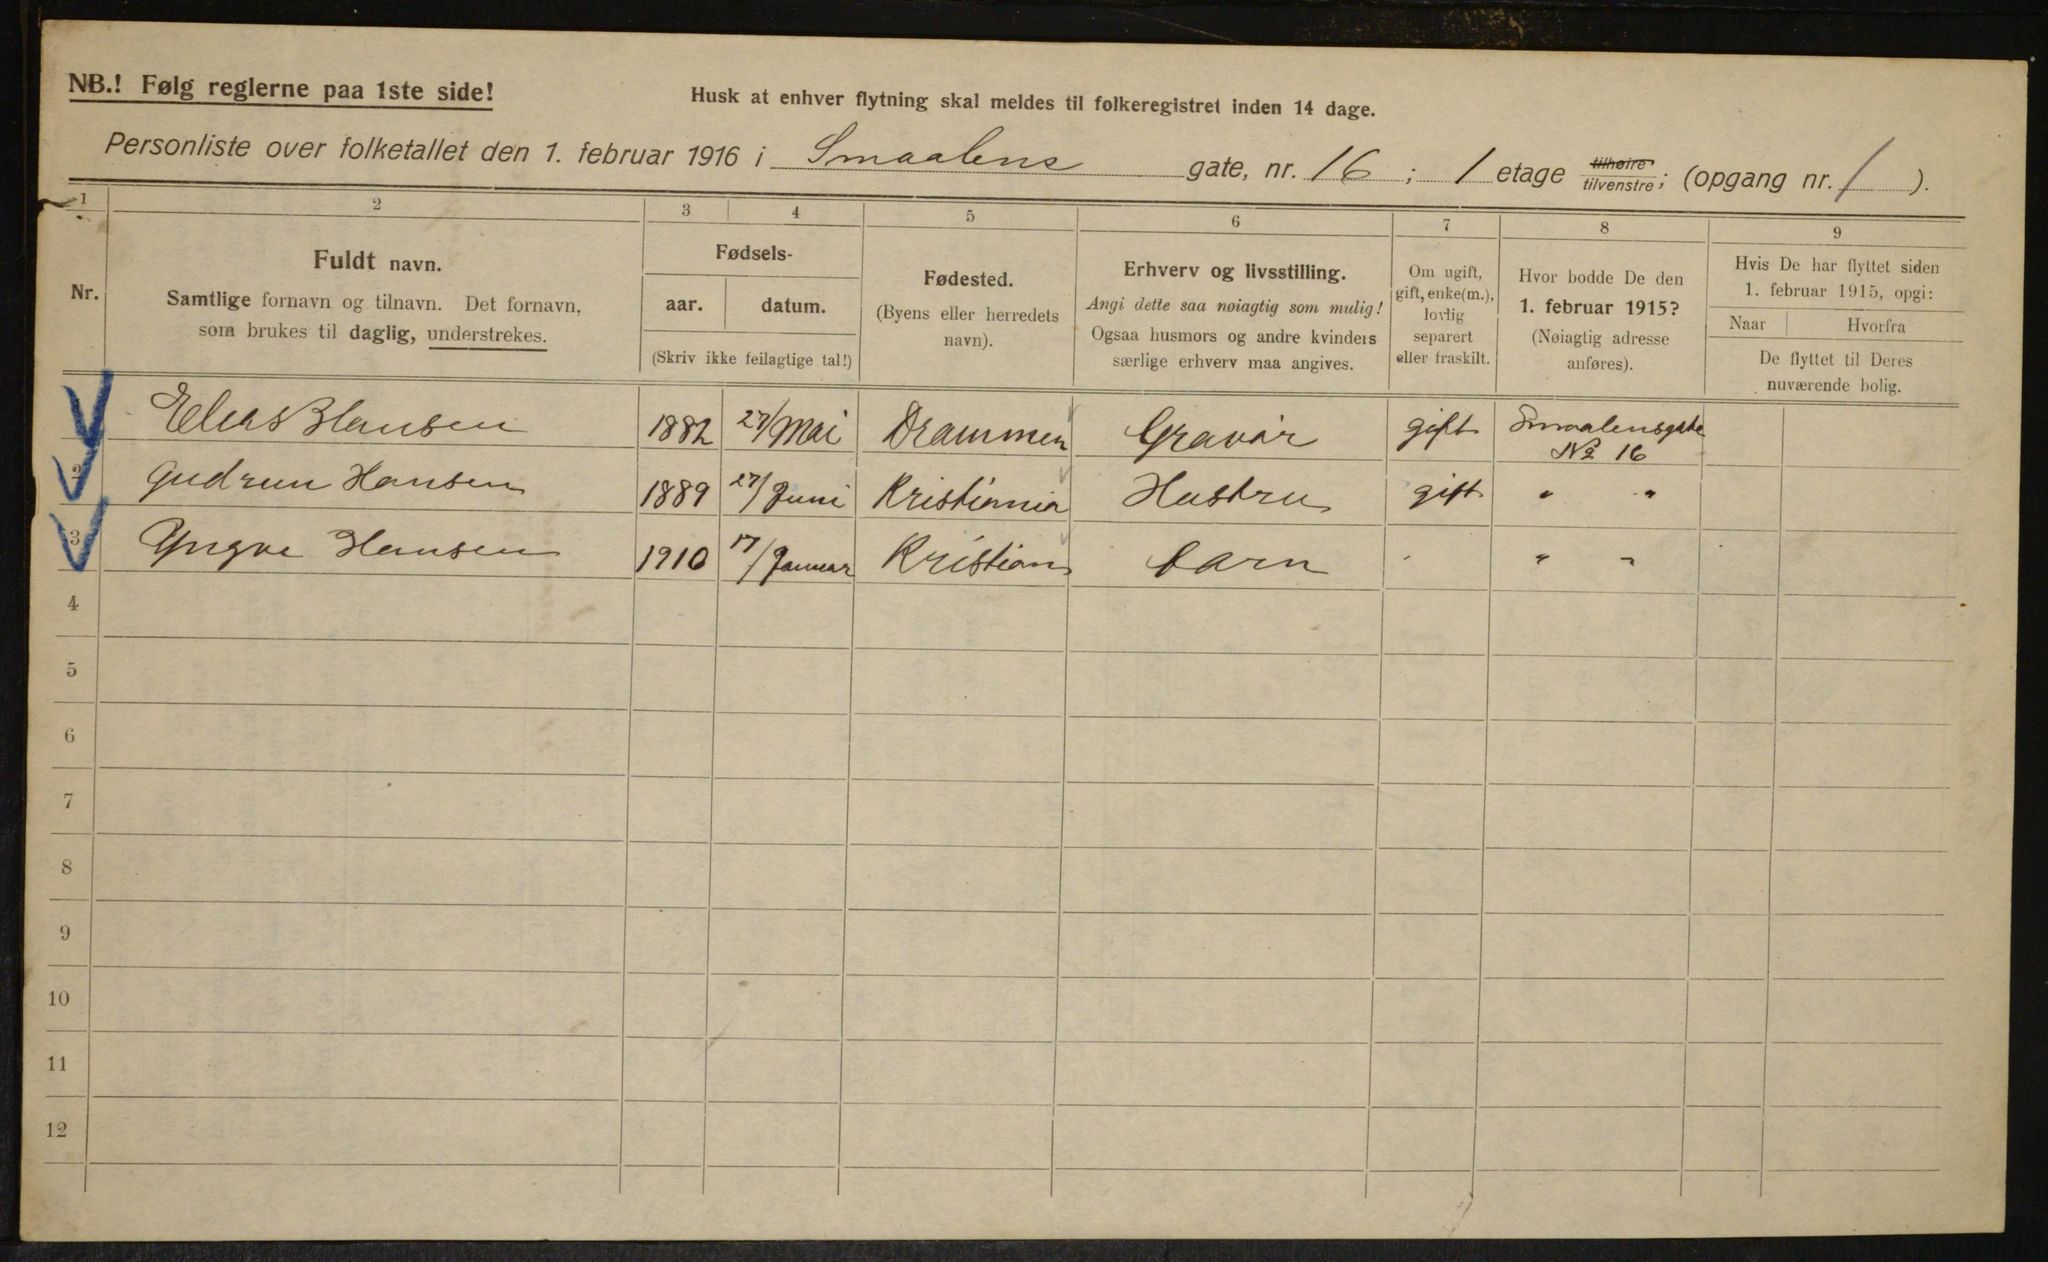 NB.! Følg reglerne paa 1ste side!
Husk at enhver flytning skal meldes til folkeregistret inden 14 dage.
Personliste over folketallet den 1. februar 1916 i Smaalens gate, nr. 16 ; 1 etage tilhøire tilvenstre; (opgang nr. 1 ).
1 2 3 4 5 6 7 8 9
Nr.
Fuldt navn.
Samtlige fornavn og tilnavn. Det fornavn,
som brukes til daglig, understrekes.
Fødsels-
aar. datum.
(Skriv ikke feilagtige tal!)
Fødested.
(Byens eller herredets
navn).
Erhverv og livsstilling.
Angi dette saa nøiagtig som mulig!
Ogsaa husmors og andre kvinders
særlige erhverv maa angives.
Om ugift,
gift, enke(m.),
lovlig
separert
eller fraskilt.
Hvor bodde De den
1. februar 1915?
(Nøiagtig adresse
anføres).
Hvis De har flyttet siden
1. februar 1915, opgi:
Naar Hvorfra
De flyttet til Deres
nuværende bolig.
Elias B Hansen 1882 27/Mai Drammen Gravør gift Smaalensgate
No 16
2 Gudrun Hansen 1889 27/Juni Kristiania Hustru gift " "
3 Yngve Hansen 1910 17/Januar Kristian barn " "
4
5
6
7
8
9
10
11
12